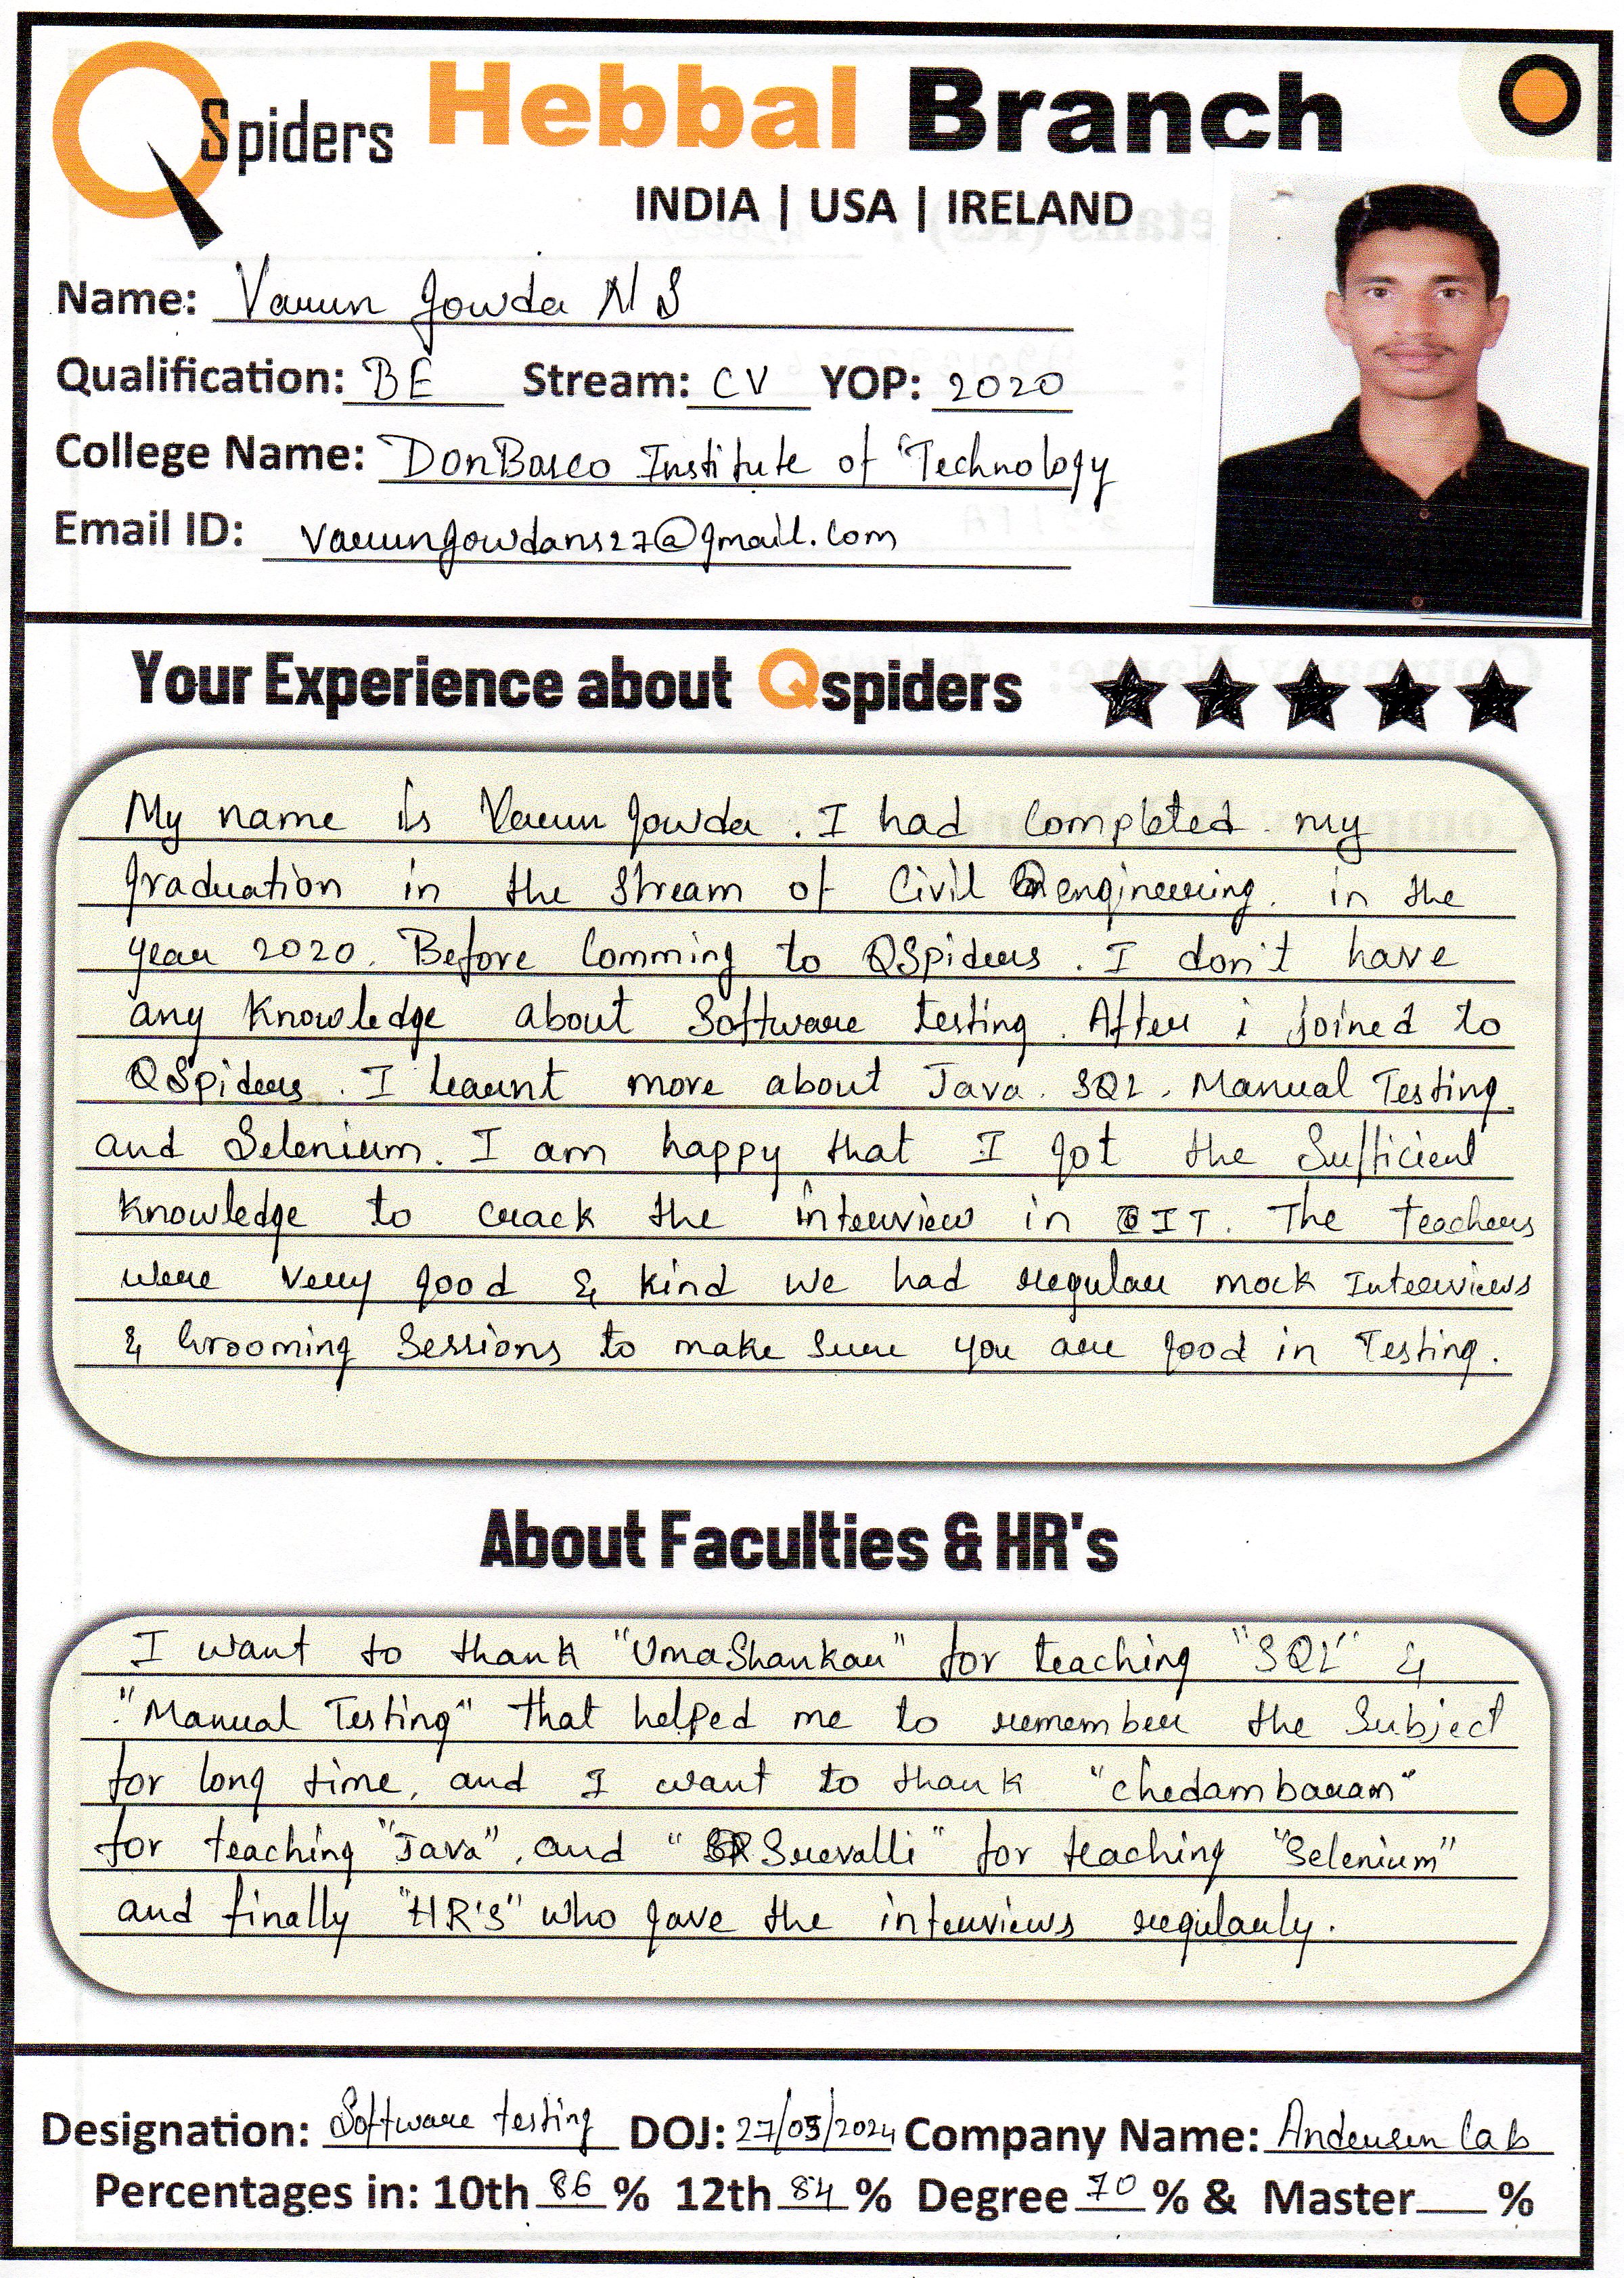 QSpiders Hebbal Branch
INDIA | USA | IRELAND
Name: Varun Gowda N S
Qualification: BE Stream: CV YOP: 2020
College Name: DonBosco Institute of Technology
Email ID: varungowdans27@gmail.com
Your Experience about Qspiders
My name is Varun Gowda. I had Completed my
graduation in the Stream of Civil engineering. in the
year 2020. Before Comming to QSpiders. I don't have
any Knowledge about Software testing. After i joined to
QSpiders. I learnt more about Java. SQL. Manual Testing.
and Selenium. I am happy that I got the Sufficient
Knowledge to crack the interview in IT. The teachers
were very good & kind we had regular mock Interviews
& Grooming Sessions to make Sure you are good in Testing.
About Faculties & HR's
I want to thank "UmaShankar" for teaching "SQL" &
"Manual Testing" that helped me to remember the Subject
for long time, and I want to thank "chedambaram"
for teaching "Java", and "Sreevalli" for teaching "Selenium"
and finally "HR's" who gave the interviews regularly.
Designation: Software testing DOJ: 27/05/2024 Company Name: Andersen lab
Percentages in: 10th 86 % 12th 84 % Degree 70 % & Master %